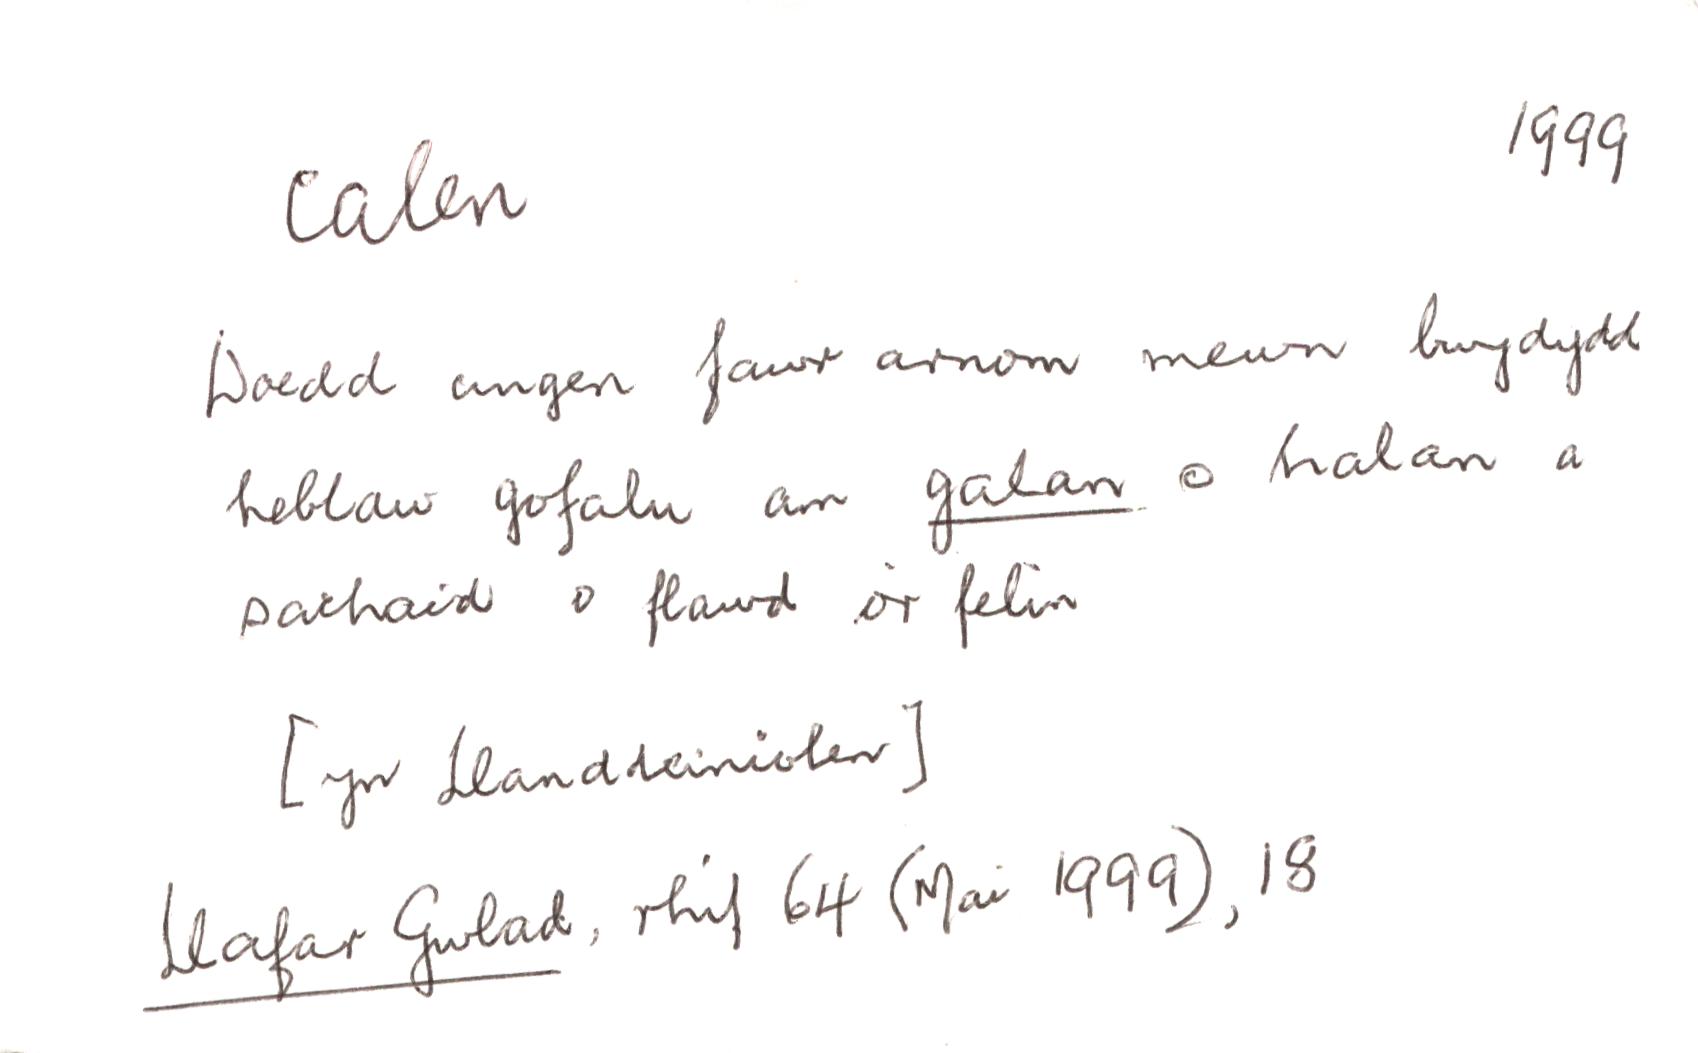 1999
calen
Doedd angen fawr arnom mewn bwydydd
heblaw gofalu am galan o halan a
sachaid o flawd o'r felin
[yn Llanddeiniolen]
Llafar Gwlad, rhif 64 (Mai 1999), 18